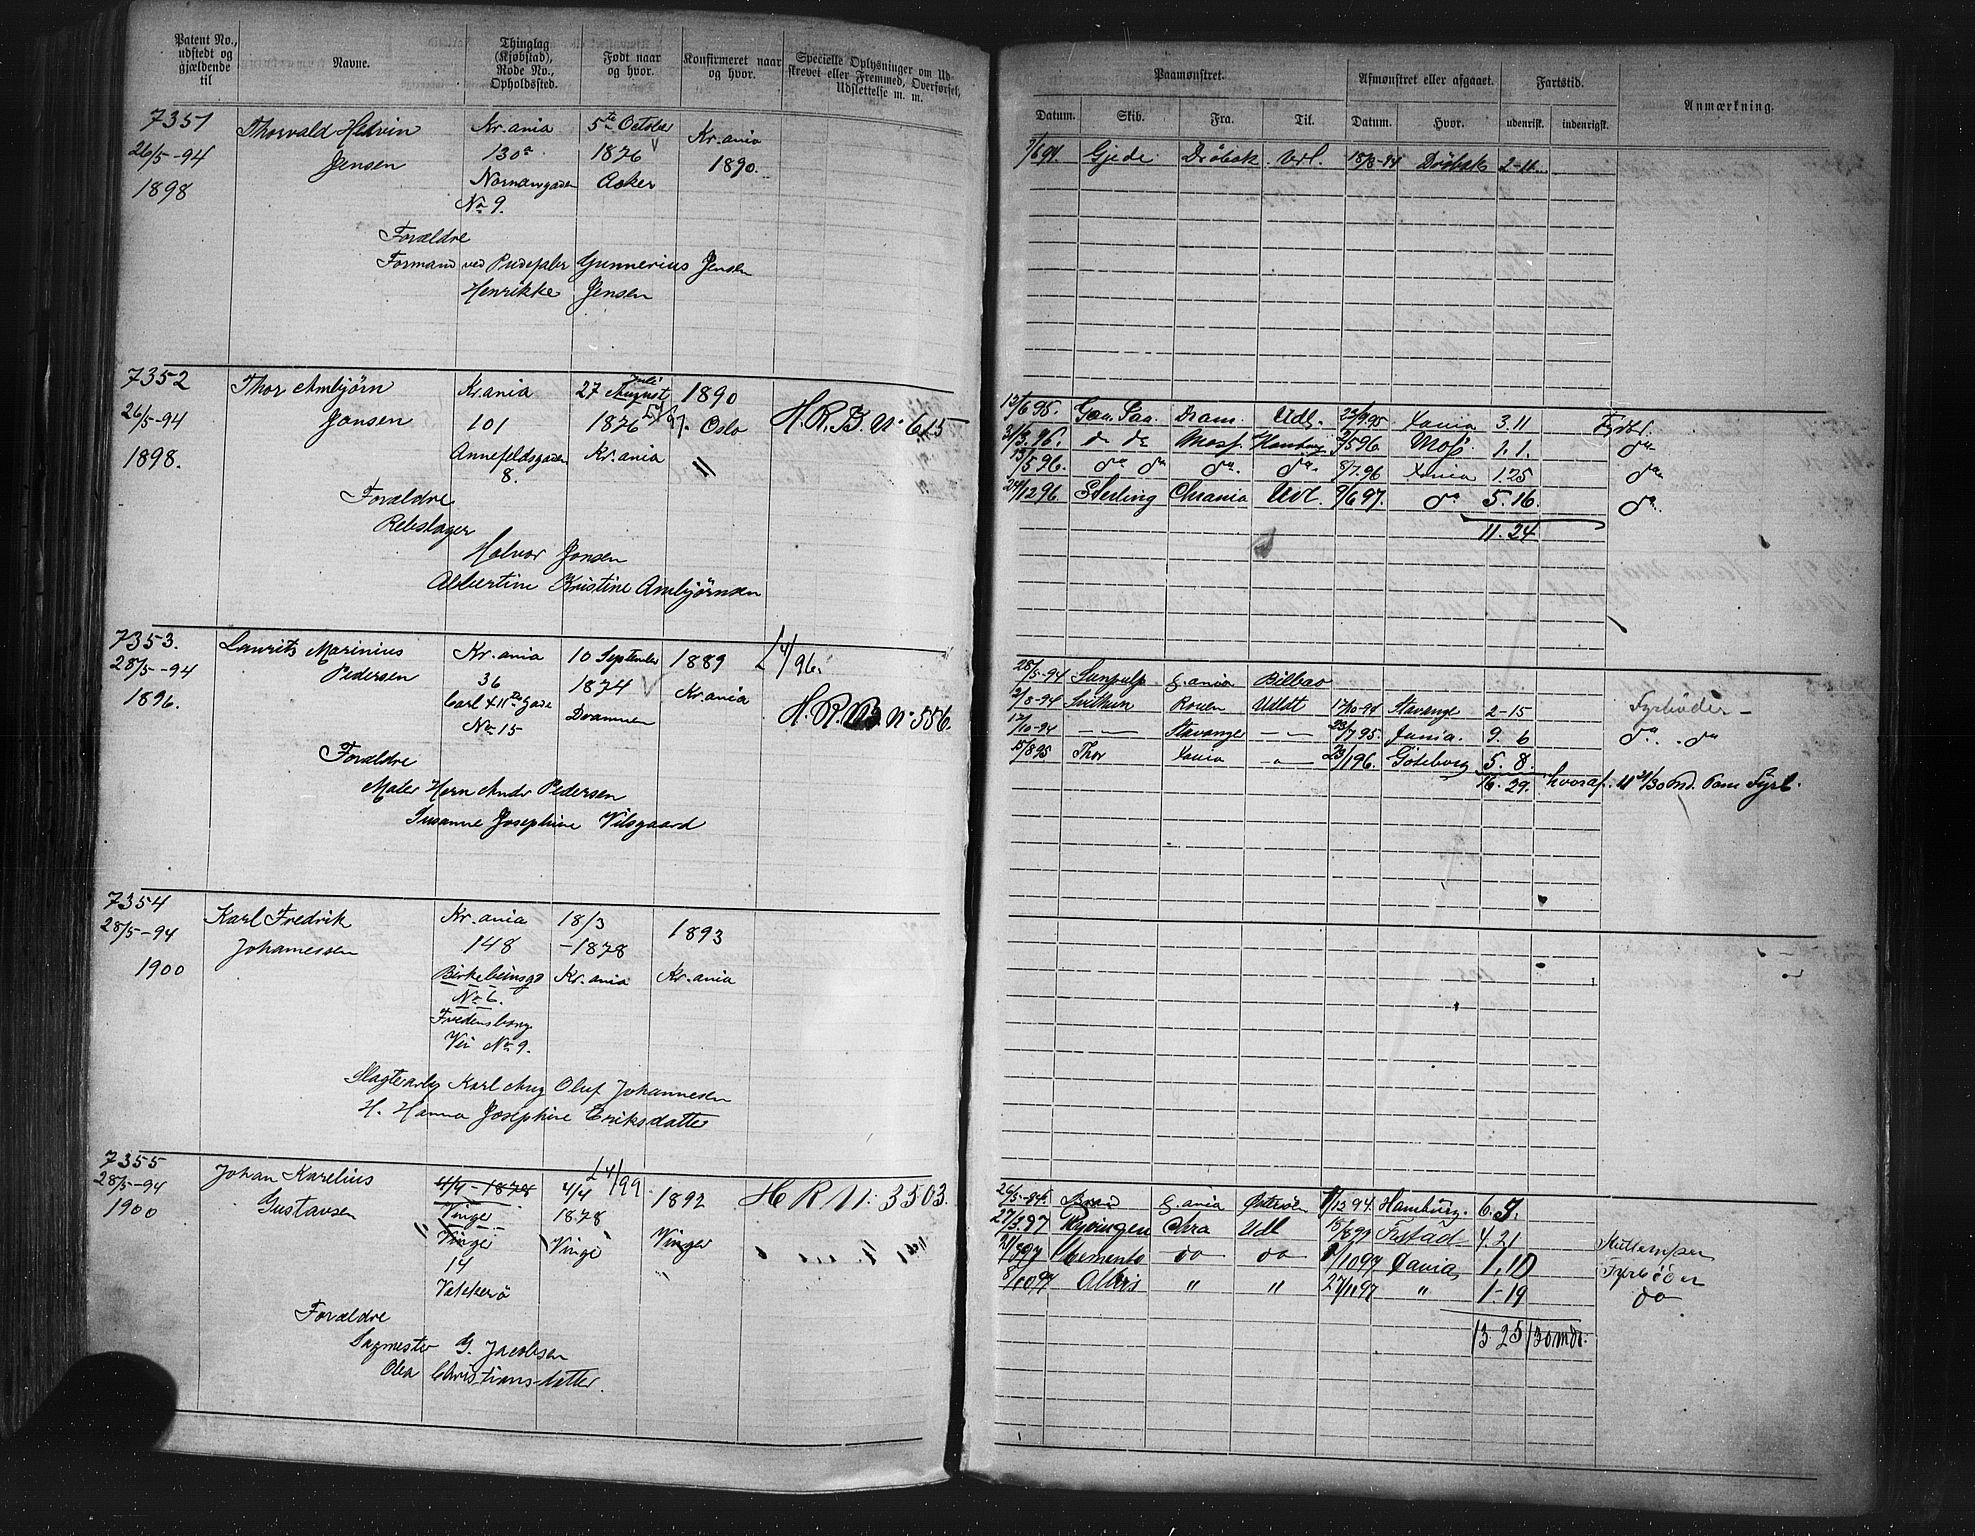 Patent No., udstedt og gjældende til
Navne.
Thinglag (Kjøbstad), Rode No., Opholdssted.
Født naar og hvor.
Konfirmeret naar og hvor.
Specielle Oplysninger om Udskrevet eller Fremmed, Overførsel, Udslettelse m. m.
Paamønstret.
Datum. Skib. Fra. Til.
Afmønstret eller afgaaet.
Datum. Hvor.
Fartstid.
udenrigsk. indenrigsk.
Anmærkning.
7351 Thorvald Hedvin Kr.ania 5te October Kr.ania
26/5-94 Jensen 130a 1876 1890.
1898 Asker
No 9.
Forældre
Formand ved Gunnerius Jensen
Henrikke Jensen
Gjede Drøbak Udl. Drøbak 2-11
7352 Thor Ambjørn Kr.ania 27 August Juli 1890
26/5-94 Jonsen 101 1876 Oslo H.R.B. No 615
1898. Annefeldsgaden Kr.ania "
8.
Forældre
Rebslager
Halvor Jonsen
Albertine Kristine Ambjørnsen
12/6 95. Dram. Udl. Xania 3.11 Fyrb.
31/3.96. do do Moss. Hamburg 2/5 96 Moss 1.1. do
13/5 96. do do do. do. 8/7.96 Xania 1.25 do
24/12 96 Sterling Chrania Udl. 9/6 97. do 5.16. do
11.24
7353. Laurits Marinius Kr.ania 10 September 1889 L 4/96.
28/5-94 Pedersen 36 1874 Kr.ania
1896. Carl XIIte Gade Drammen H.R. No 556.
No 15
Forældre
Maler Herm Andr Pedersen
Susanne Josephine Vilsgaard
28/5-94 Sunpulp X.ania Bilbao
2/8-94 Svithun Rouen Udldt 17/10-94 Stavanger 2-15 Fyrbøder
17/10-94 — — Stavanger — — 23/7 95. Xania. 9. 6 do. . do
15/8 95 Thor Xania — 23/1 96. Göteborg 5. 8.
16. 29. hvoraf. 11 21/30 md. som Fyrb.
7354 Karl Fredrik Kr.ania 18/3 1893
28/5-94 Johannessen 148 -1878
1900 Birkebeinsgd Kr.ania Kr.ania
No 6.
Fredensborg
Vei No 9.
Slagterarb Karl Aug Oluf Johannesen
H. Hanna Josephine Eriksdatter
7355 Johan Karelius 4/4-1878 4/4 L 4/99 1892 H R N: 3503.
28/5-94 Gustavsen Vinger 1878 Vinger
1900 Vinger Vinge
14
Vækkerö
Forældre
Sagmester G. Jacobsen
Olea Christiansdatter.
26/5-94. X.ania 1/12 94. Hamburg. 6.
27/3 97 Kyvingen Chra Udl Fr.stad 4. 21
Clemento do do 1/10 97 Xania 1.10 Fyrbøder
8/10 97 Albis " " 27/11 97 " 1-19 do
13 25/30 mdr.